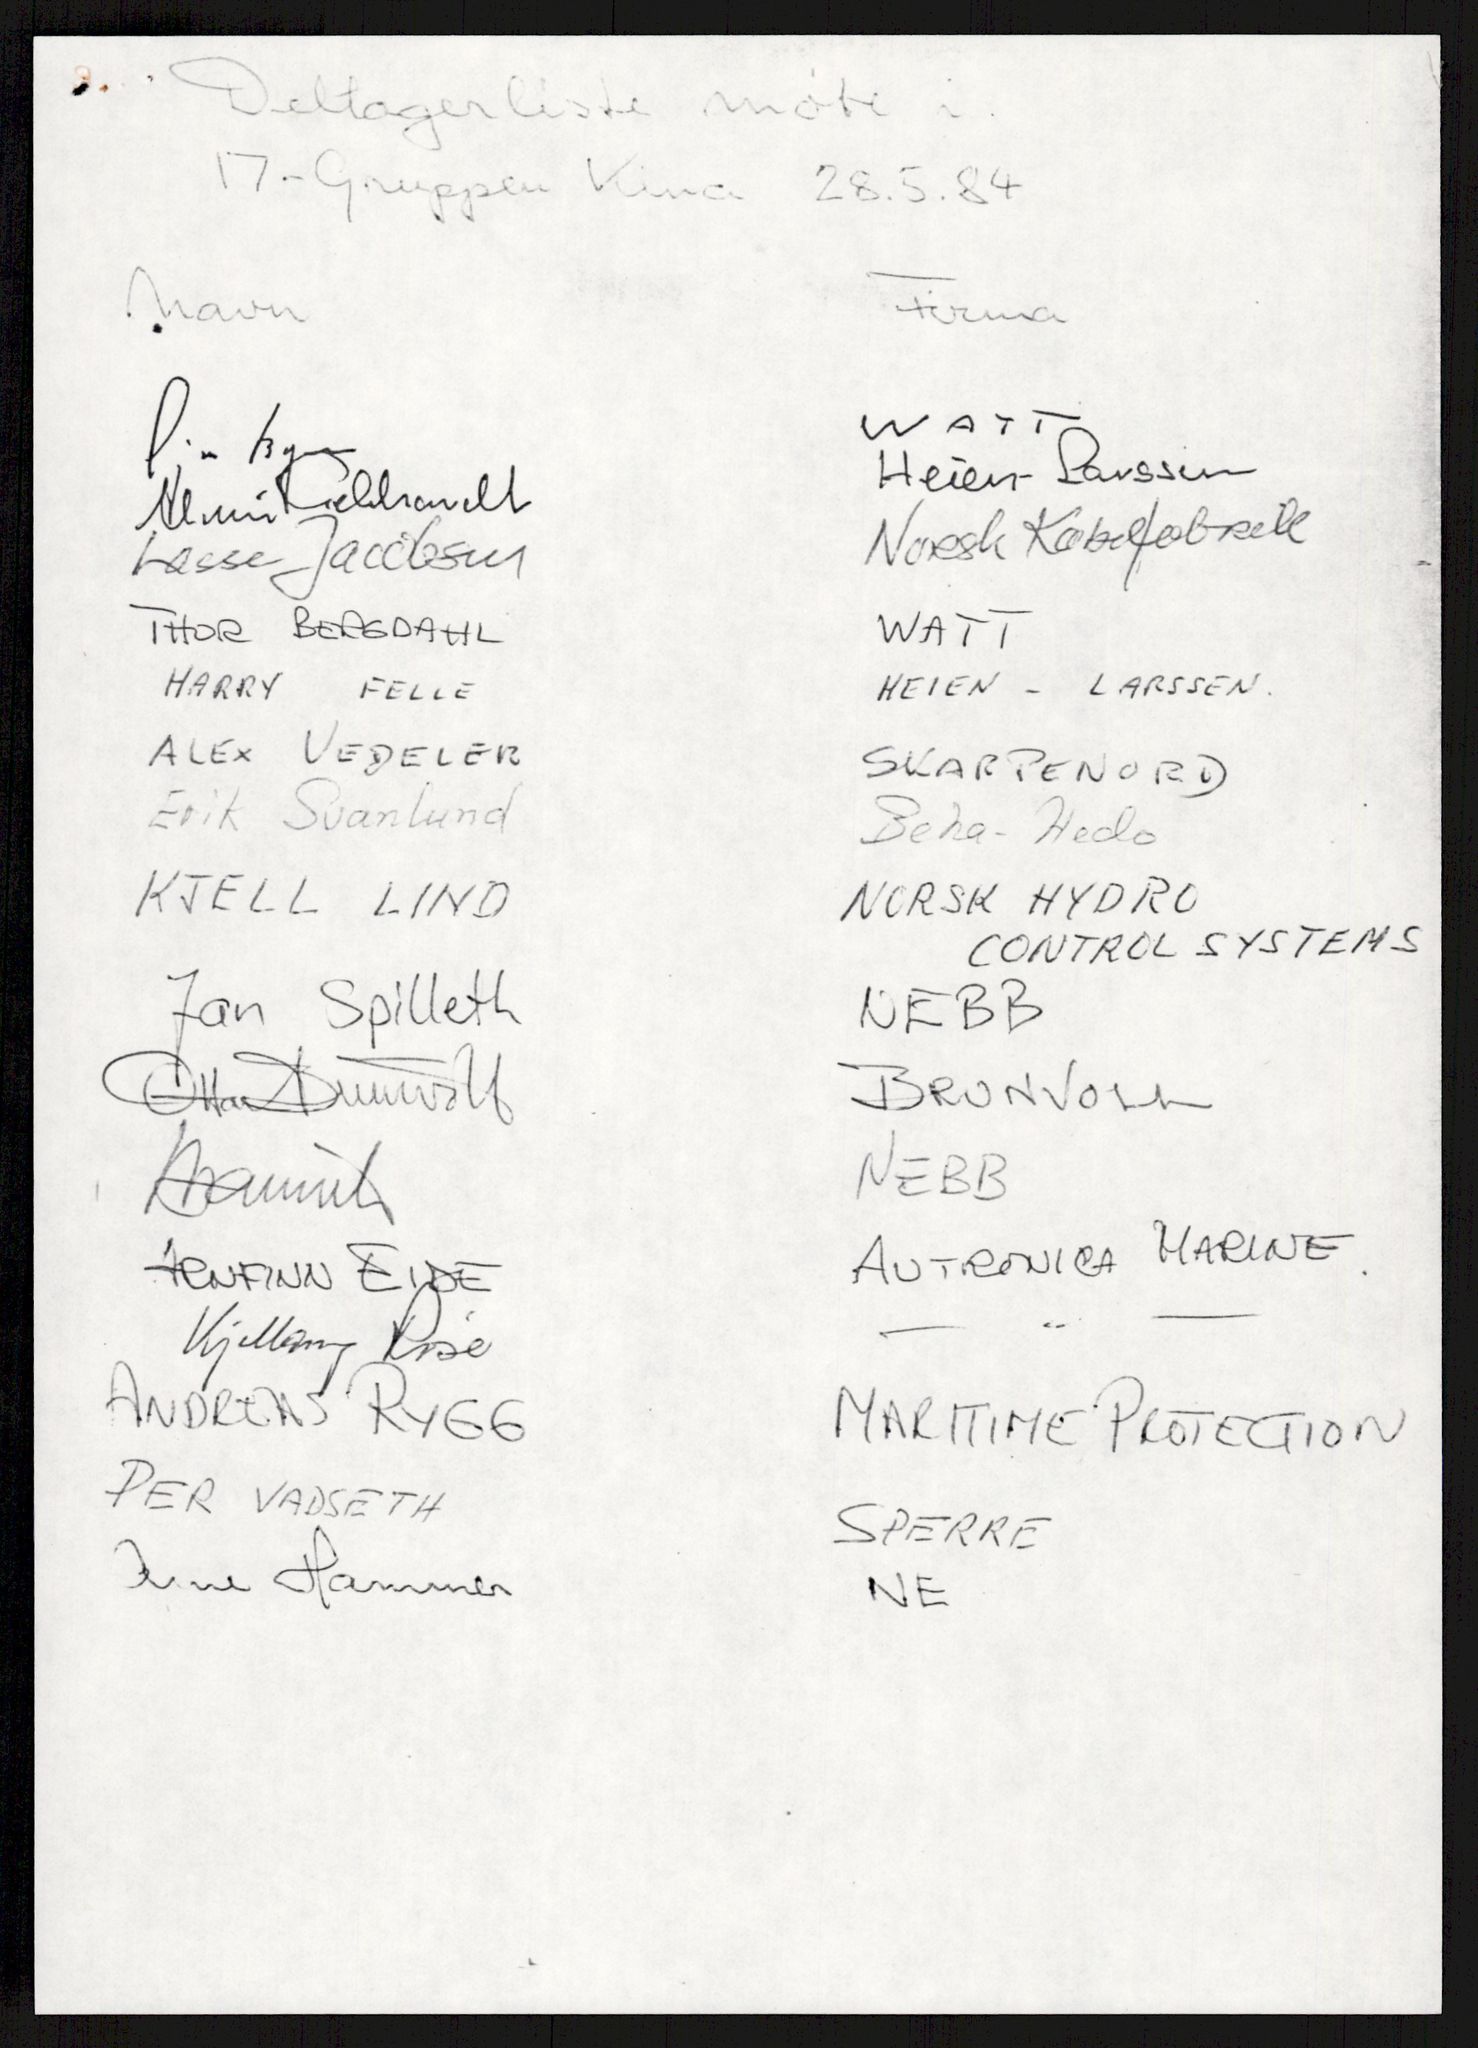 Deltagerliste møte i
17-Gruppen Kina 28.5.84
Navn Firma
WATT
Heien-Larssen
Lasse Jacobsen Norsk Kabelfabrikk
THOR BERGDAHL WATT
HARRY FELLE HEIEN - LARSSEN.
ALEX VEDELER SKARPENORD
Erik Svanlund Beha-Hedo
KJELL LIND NORSK HYDRO
CONTROL SYSTEMS
Jan Spilleth NEBB
Ottar BRUNVOLL
NEBB
ARNFINN EIDE AUTRONICA MARINE.
— " —
ANDREAS RYGG MARITIME PROTECTION
PER VADSETH SPERRE
Hammer NE